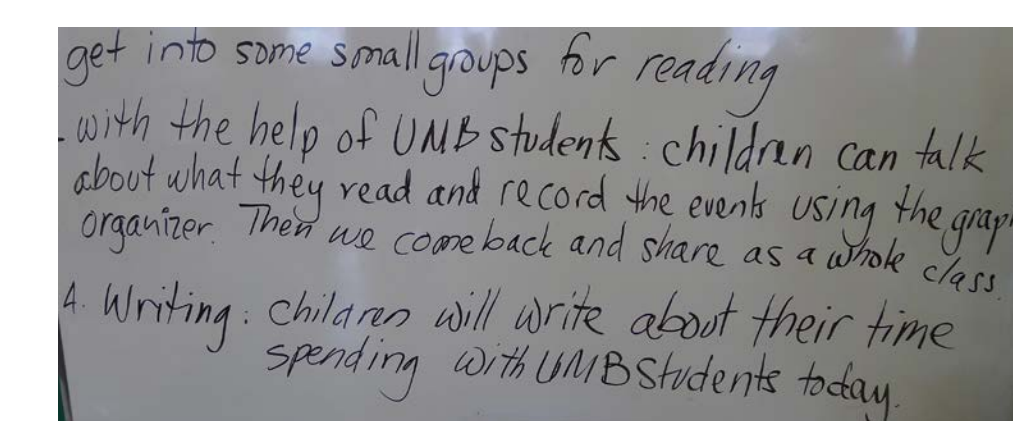 get into some small groups for reading
- with the help of UMB students : children can talk
about what they read and record the events using the grap
organizer. Then we come back and share as a whole class.
4. Writing : children will write about their time
spending with UMB Students today.